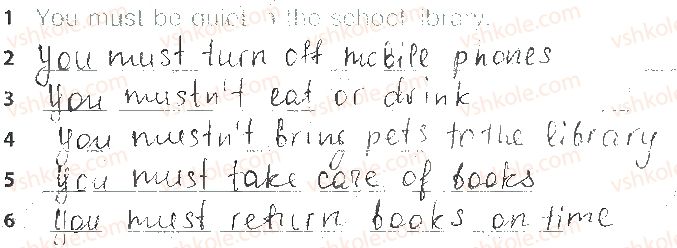 1 You must be quiet in the school library.
2 You must turn off mobile phones
3 You mustn't eat or drink
4 You mustn't bring pets to the library
5 You must take care of books
6 You must return books on time